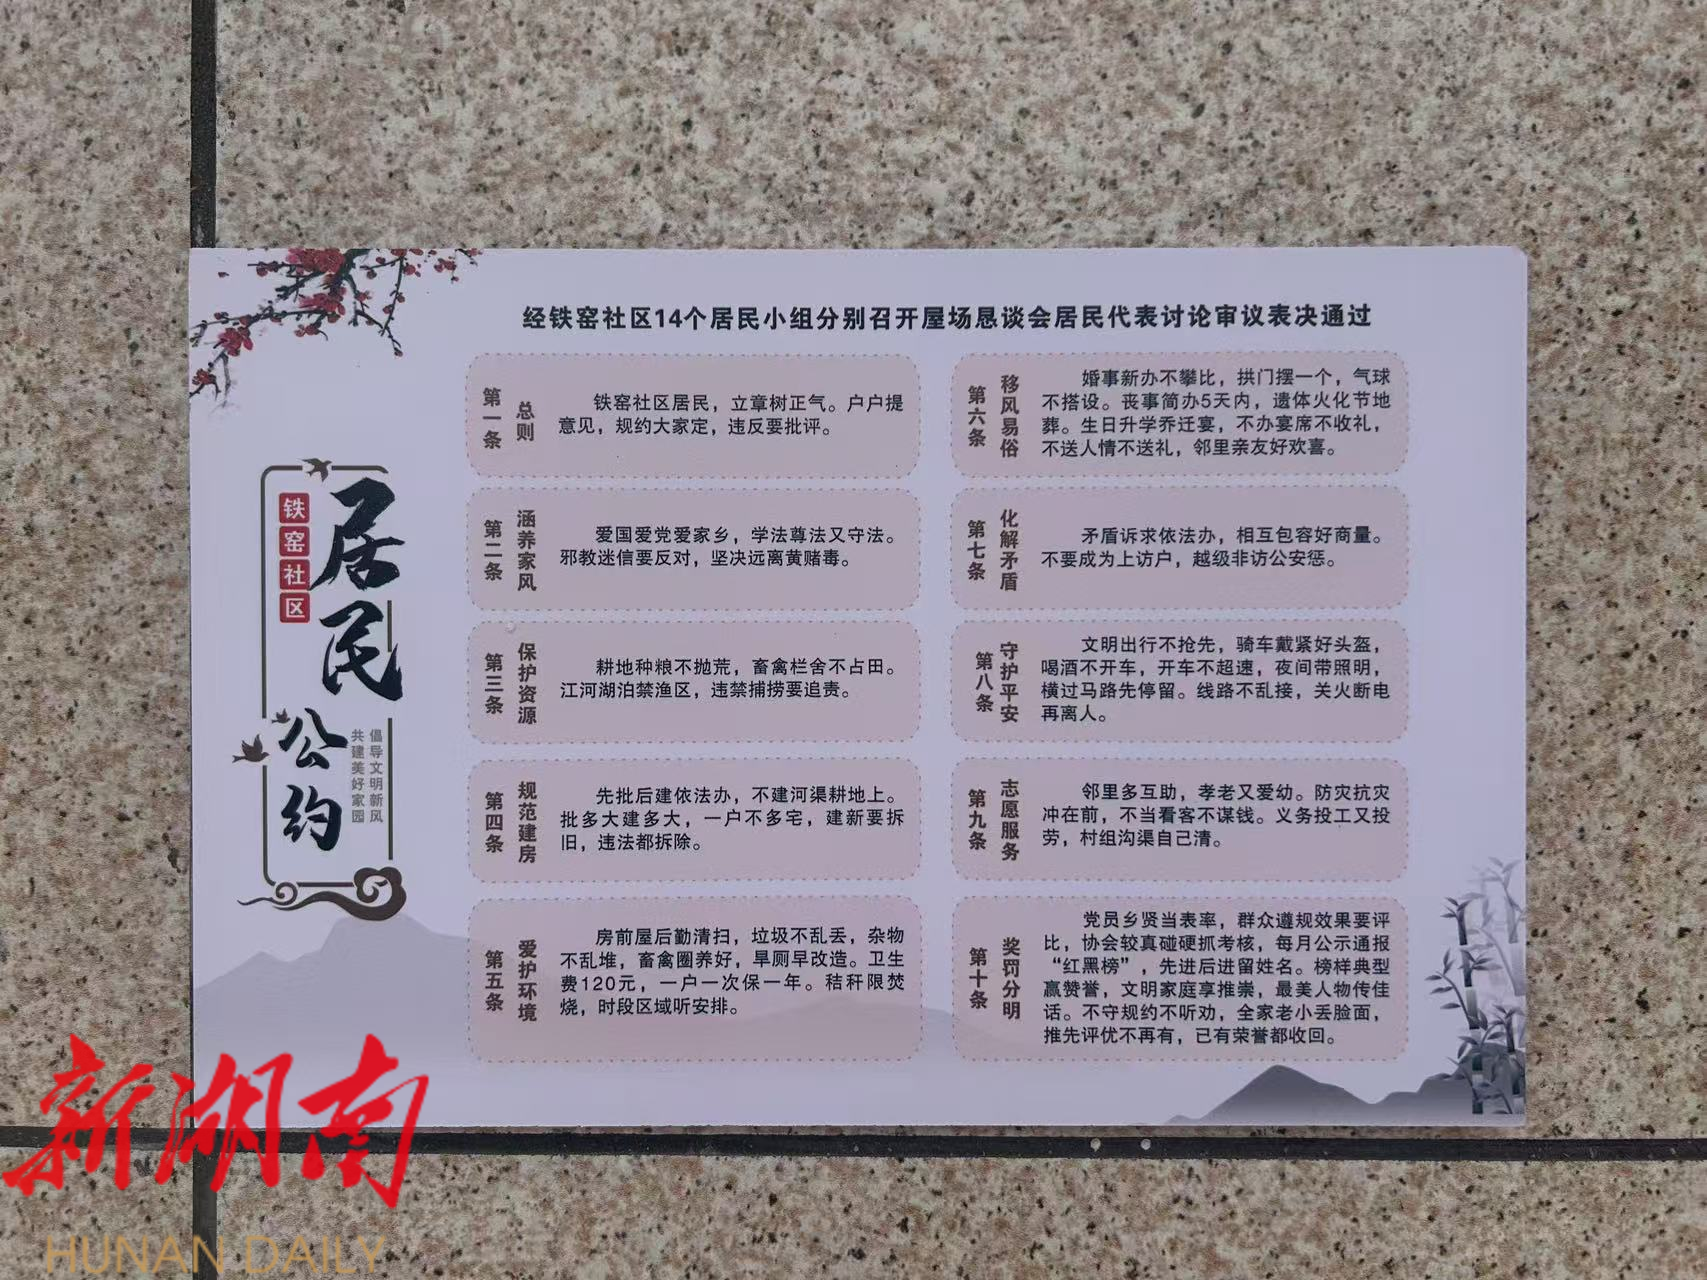 经铁窑社区14个居民小组分别召开屋场恳谈会居民代表讨论审议表决通过
铁窑社区
居民公约
倡导文明新风
共建美好家园
第一条
总则
铁窑社区居民，立章树正气。户户提
意见，规约大家定，违反要批评。
第二条
涵养家风
爱国爱党爱家乡，学法尊法又守法。
邪教迷信要反对，坚决远离黄赌毒。
第三条
保护资源
耕地种粮不抛荒，畜禽栏舍不占田。
江河湖泊禁渔区，违禁捕捞要追责。
第四条
规范建房
先批后建依法办，不建河渠耕地上。
批多大建多大，一户不多宅，建新要拆
旧，违法都拆除。
第五条
爱护环境
房前屋后勤清扫，垃圾不乱丢，杂物
不乱堆，畜禽圈养好，旱厕早改造。卫生
费120元，一户一次保一年。秸秆限焚
烧，时段区域听安排。
第六条
移风易俗
婚事新办不攀比，拱门摆一个，气球
不搭设。丧事简办5天内，遗体火化节地
葬。生日升学乔迁宴，不办宴席不收礼，
不送人情不送礼，邻里亲友好欢喜。
第七条
化解矛盾
矛盾诉求依法办，相互包容好商量。
不要成为上访户，越级非访公安惩。
第八条
守护平安
文明出行不抢先，骑车戴紧好头盔，
喝酒不开车，开车不超速，夜间带照明，
横过马路先停留。线路不乱接，关火断电
再离人。
第九条
志愿服务
邻里多互助，孝老又爱幼。防灾抗灾
冲在前，不当看客不谋钱。义务投工又投
劳，村组沟渠自己清。
第十条
奖罚分明
党员乡贤当表率，群众遵规效果要评
比，协会较真碰硬抓考核，每月公示通报
“红黑榜”，先进后进留姓名。榜样典型
赢赞誉，文明家庭享推崇，最美人物传佳
话。不守规约不听劝，全家老小丢脸面，
推先评优不再有，已有荣誉都收回。
新湖南
HUNAN DAILY